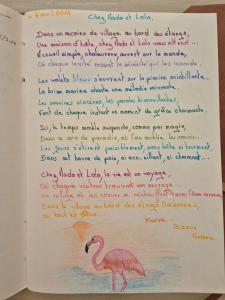 4 avril 2024
Chez Nado et Lola.
Dans un morceau de village au bord des étangs,
Une maison d'hôte, chez Nado et Lola vous attend...
Accueil simple, chaleureux, ouvert sur le monde,
Où chaque invité ressent la sérénité qui les inonde.
Les volets bleus s'ouvrent sur la piscine scintillante,
La brise marine chante une mélodie enivrante.
Les sourires sincères, les paroles bienveillantes,
Font de chaque instant un moment de grâce charmante.
Ici, le temps semble suspendu, comme par magie,
Dans ce coin de paradis, où l'on oublie les soucis...
Les jours s'étirent paisiblement, sans hâte ni tourment,
Dans cet havre de paix, si accueillant, si charmant...
Chez Nado et Lola, la vie est un voyage,
Où chaque visiteur trouvent son ancrage...
Un refuge où les cœurs se réchauffent
Dans le village au bord des étangs
où tout est
Karine
Bisous